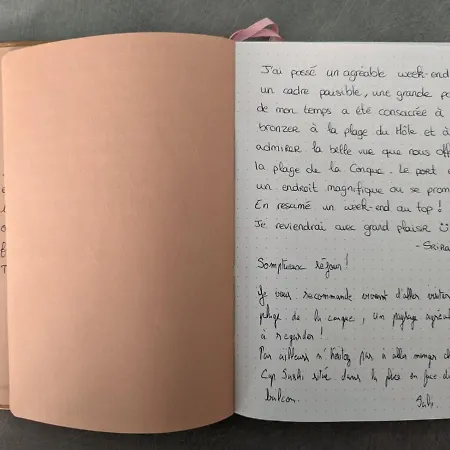 J'ai passé un agréable week-end
un cadre paisible, une grande
de mon temps a été consacrée à
bronzer à la plage du Môle et à
admirer la belle vue que nous
la plage de la Conque. Le port
un endroit magnifique ou se
En resumé un week-end au top!
Je reviendrai avec grand plaisir
Somptueux séjour!
Je vous recommande vivement d'aller
plage de la conque, un paysage
à regarder!
Par ailleurs n'hésitez pas à aller manger
Cap Sushi situé dans la place en face
balcon.